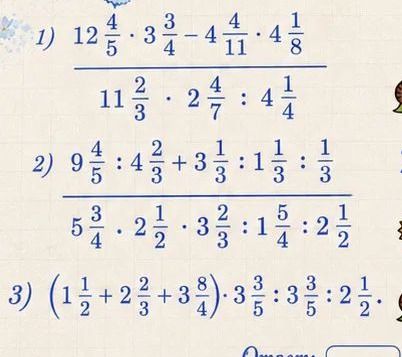 1) 12 4/5 · 3 3/4 − 4 4/11 · 4 1/8
11 2/3 · 2 4/7 : 4 1/4
2) 9 4/5 : 4 2/3 + 3 1/3 : 1 1/3 : 1/3
5 3/4 . 2 1/2 · 3 2/3 : 1 5/4 : 2 1/2
3) (1 1/2 + 2 2/3 + 3 8/4) · 3 3/5 : 3 3/5 : 2 1/2 .